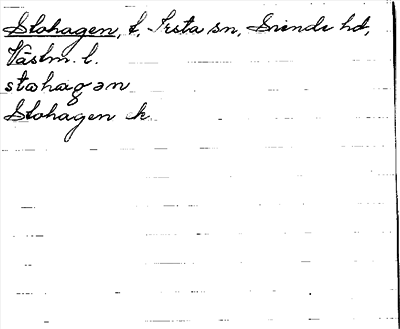 Stohagen, t. Irsta sn, Siende hd,
Västm. l.
stωhagən
Stohagen ek.